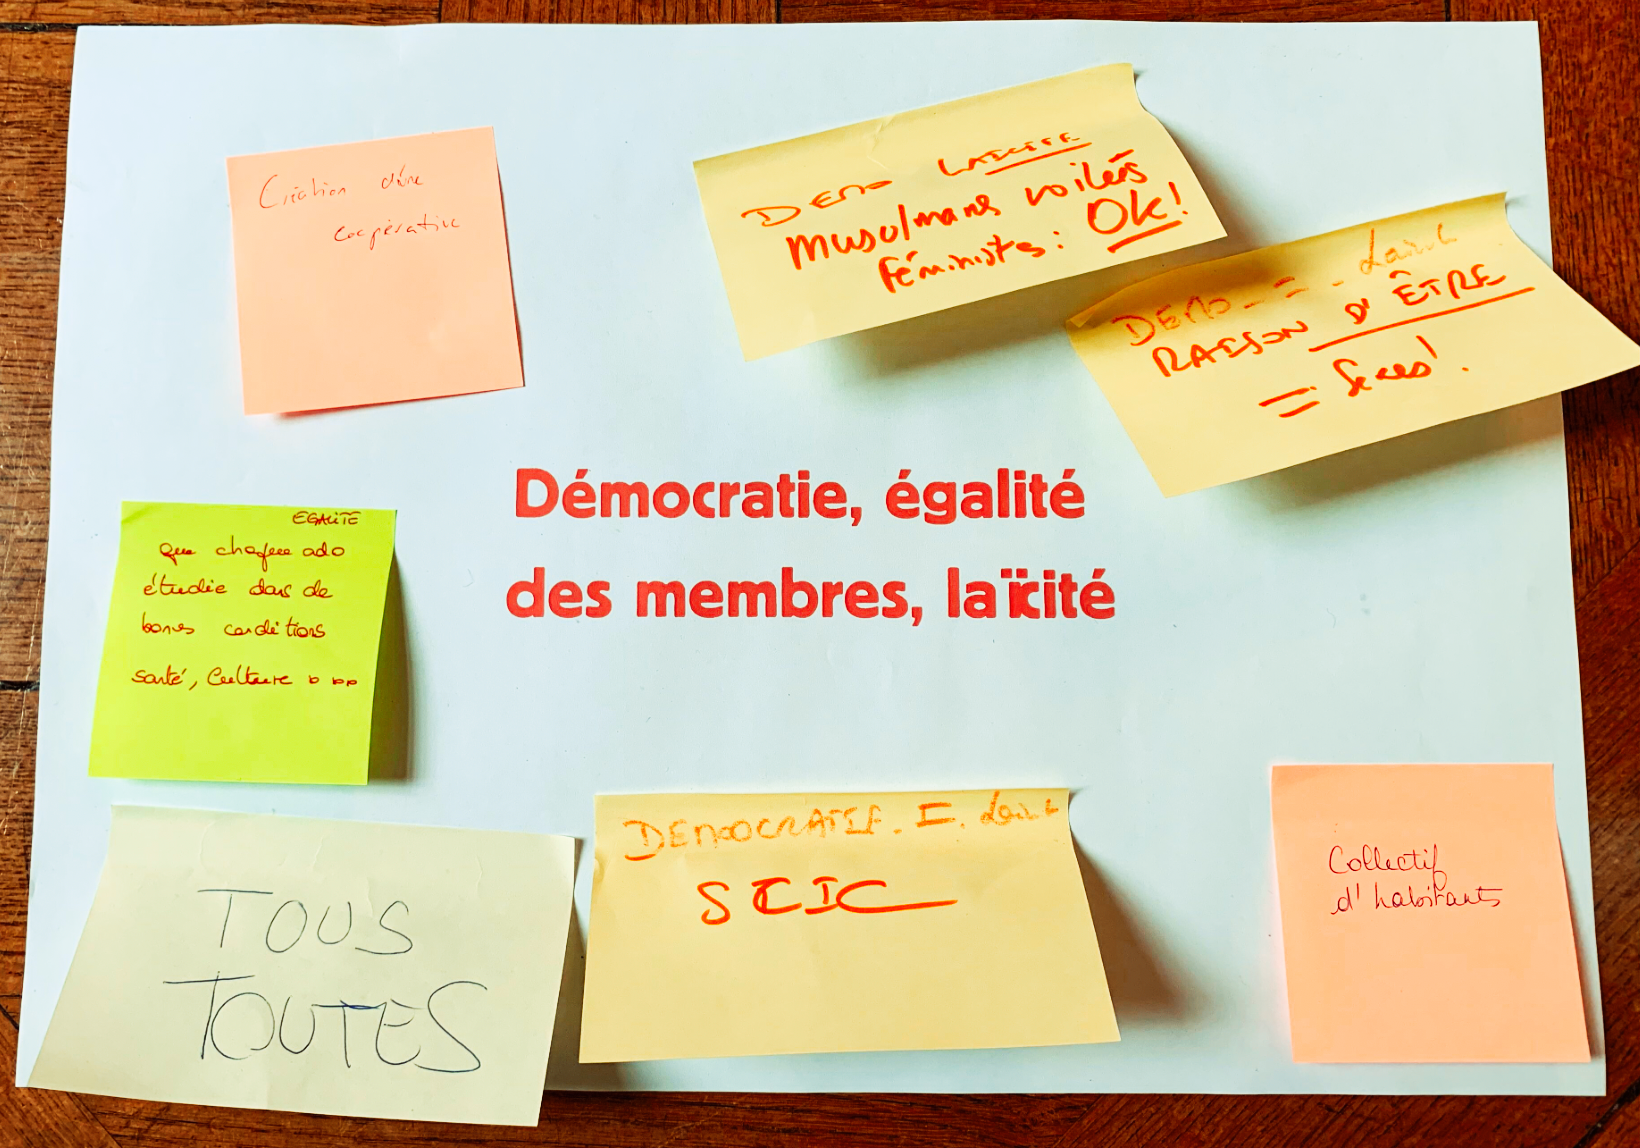 Création d'une
coopérative
DEMO LAICITE
Musulmans voilées
féministes : OK!
DEMO - = - Laïcit
RAISON D'ÊTRE
=
Démocratie, égalité
des membres, laïcité
EGALITE
que chaque ado
étudie dans de
bonnes conditions
santé, Culture ...
TOUS
TOUTES
DEMOCRATIE. =. Laïcit
SCIC
Collectif
d'habitants